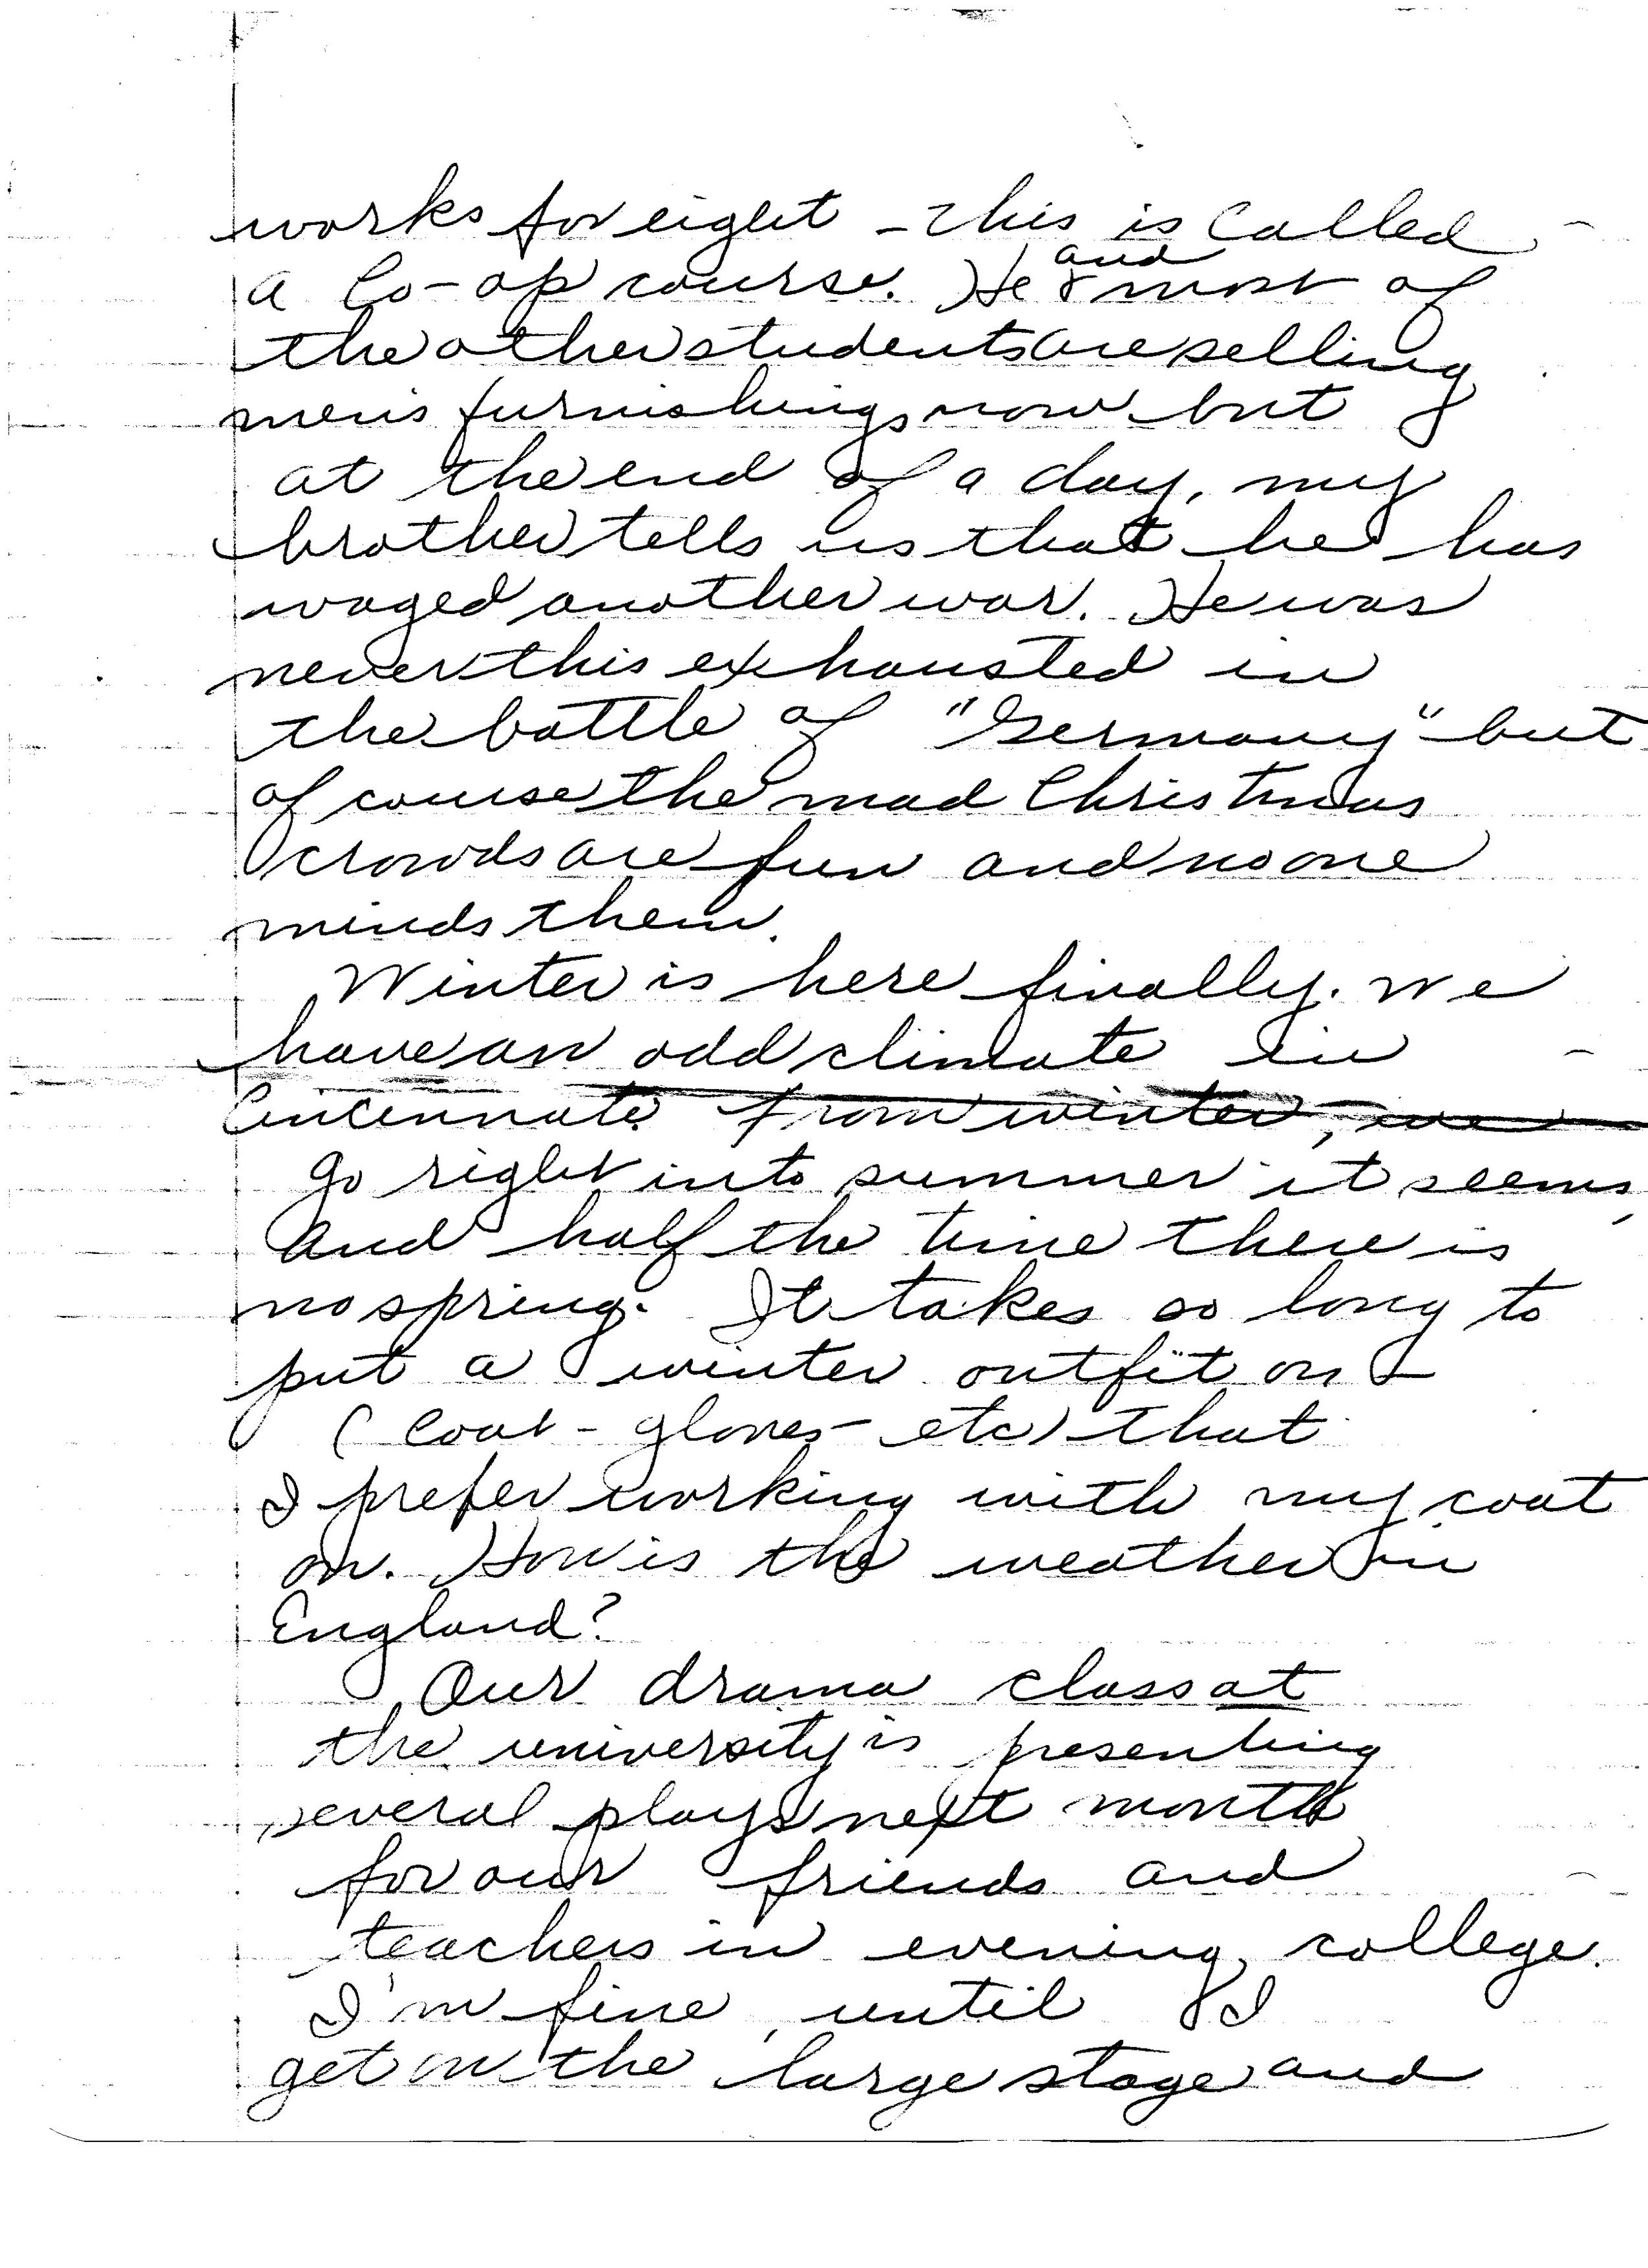 works for eight - this is called
a Co-op course. He and most of
the other students are selling
men's furnishings now but
at the end of a day, my
brother tells us that he has
waged another war. He was
never this exhausted in
the battle of "Germany" but
of course the mad Christmas
crowds are fun and no one
minds them.
Winter is here finally. We
have an odd climate in
Cincinnati. From winter, we
go right into summer it seems,
and half the time there is
no spring. It takes so long to
put a winter outfit on -
(coat - gloves - etc) that
I prefer working with my coat
on. How is the weather in
England?
Our drama class at
the university is presenting
several plays next month
for our friends and
teachers in evening college.
I'm fine, until I
get on the large stage and